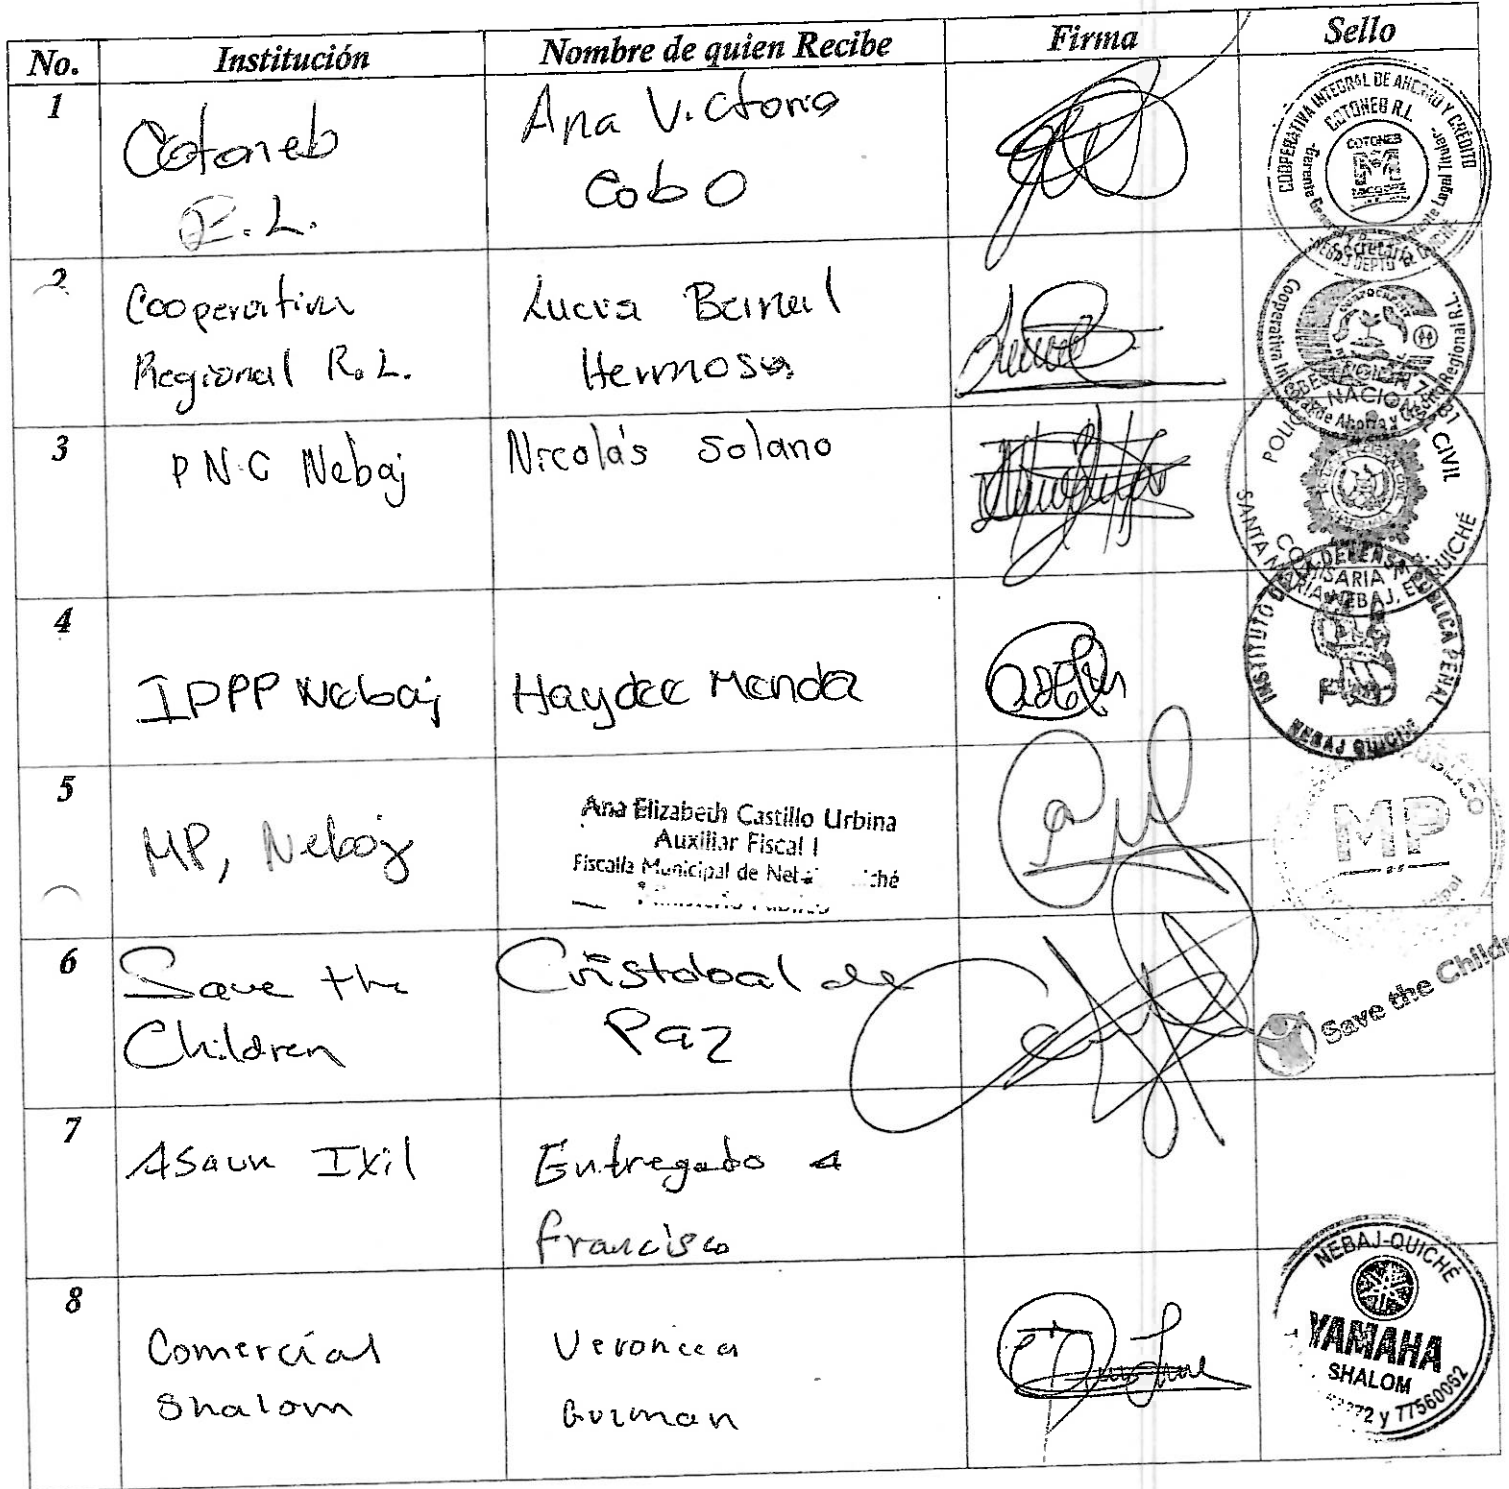 No. Institución Nombre de quien Recibe Firma Sello
1
Cotoneb
R.L.
Ana Victoria
Cobo
COOPERATIVA INTEGRAL DE AHORRO Y CRÉDITO
COTONEB R.L.
COTONEB
2
Cooperativa
Regional R.L.
Lucia Bernal
Hermosa
Secretaria
3
PNC Nebaj
Nicolás Solano
POLICIA NACIONAL CIVIL
COMISARIA
SANTA MARIA NEBAJ, EL QUICHÉ
4
IDPP Nebaj
Haydee
INSTITUTO DE LA DEFENSA PÚBLICA PENAL
NEBAJ QUICHE
5
MP, Nebaj
Ana Elizabeth Castillo Urbina
Auxiliar Fiscal I
Fiscalía Municipal de
MP
6
Save the
Children
Cristobal de
Paz
Save the Children
7
Asaun Ixil
Entregado a
Francisco
8
Comercial
Shalom
Veronica
Guzman
NEBAJ-QUICHÉ
YAMAHA
SHALOM
y 77560062